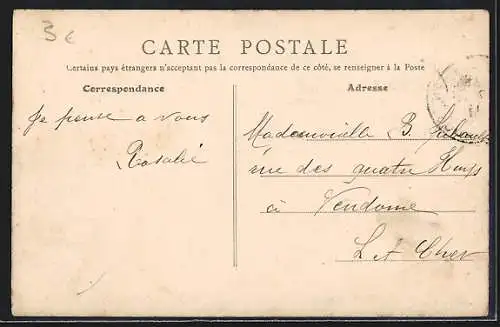 3€
CARTE POSTALE
Certains pays étrangers n'acceptant pas la correspondance de ce côté, se renseigner à la Poste
Correspondance
Je pense a vous
Rosalie
Adresse
Mademoiselle B.
rue des quatre Huys
à Vendome
L et Cher